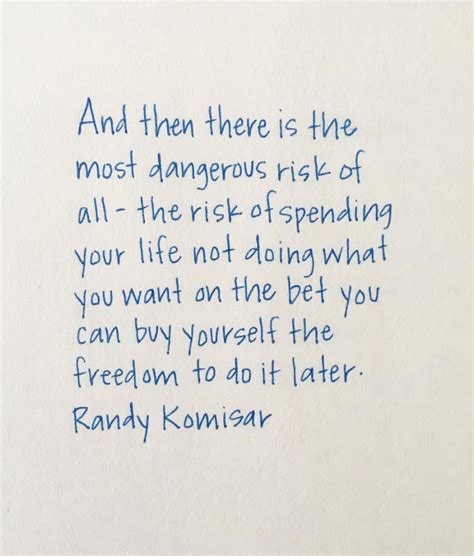 And then there is the
most dangerous risk of
all - the risk of spending
your life not doing what
you want on the bet you
can buy yourself the
freedom to do it later.
Randy Komisar